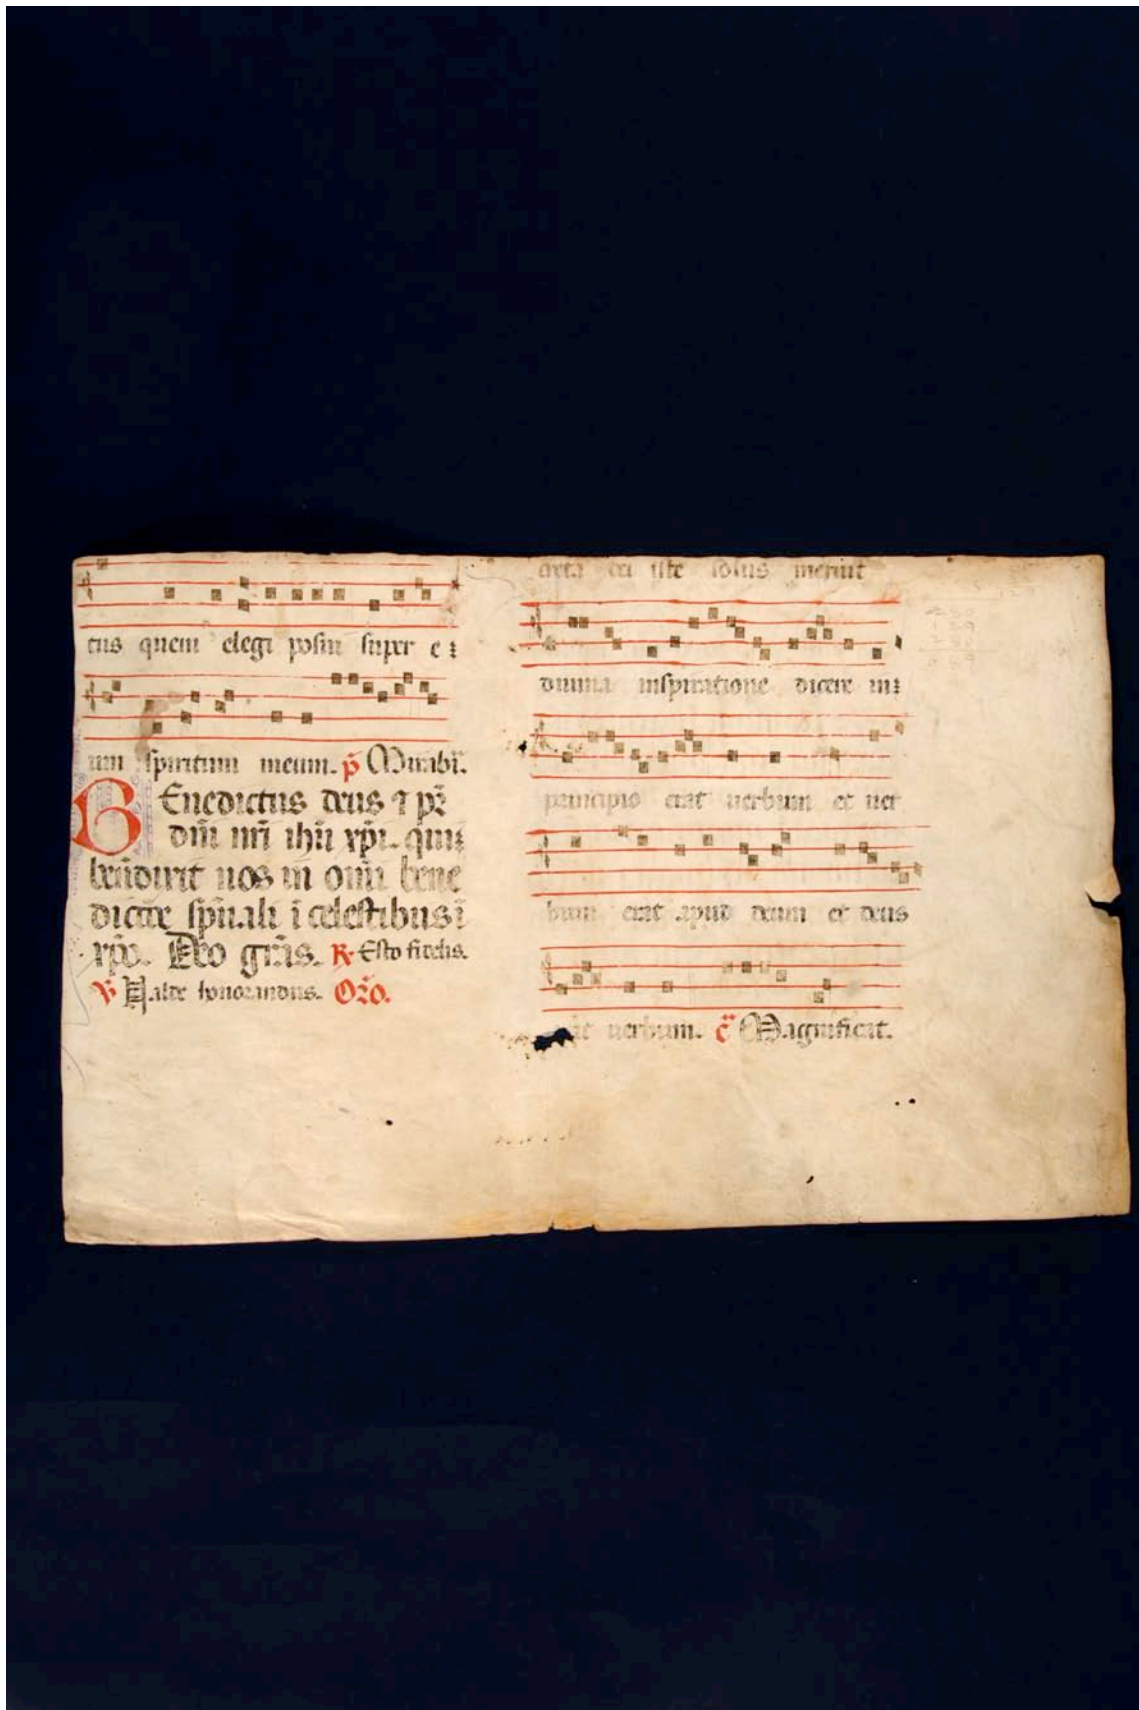 ctus quem elegi posui super e
um spiritum meum. p̄ Mirabi.
Benedictus deus ⁊ pr̄
dn̄i nr̄i ihū xp̄i. qui
bn̄dixit nos in om̄i bene
dictōe sp̄uali ī celestibus ī
xp̄o. Deo gr̄as. R Esto fidelis.
V Valde honorandus. Oro.
dei iste solus meruit
diuina inspiratione dicere in
principio erat uerbum et uer
bum erat apud deum et deus
uerbum. c̄ Magnificat.